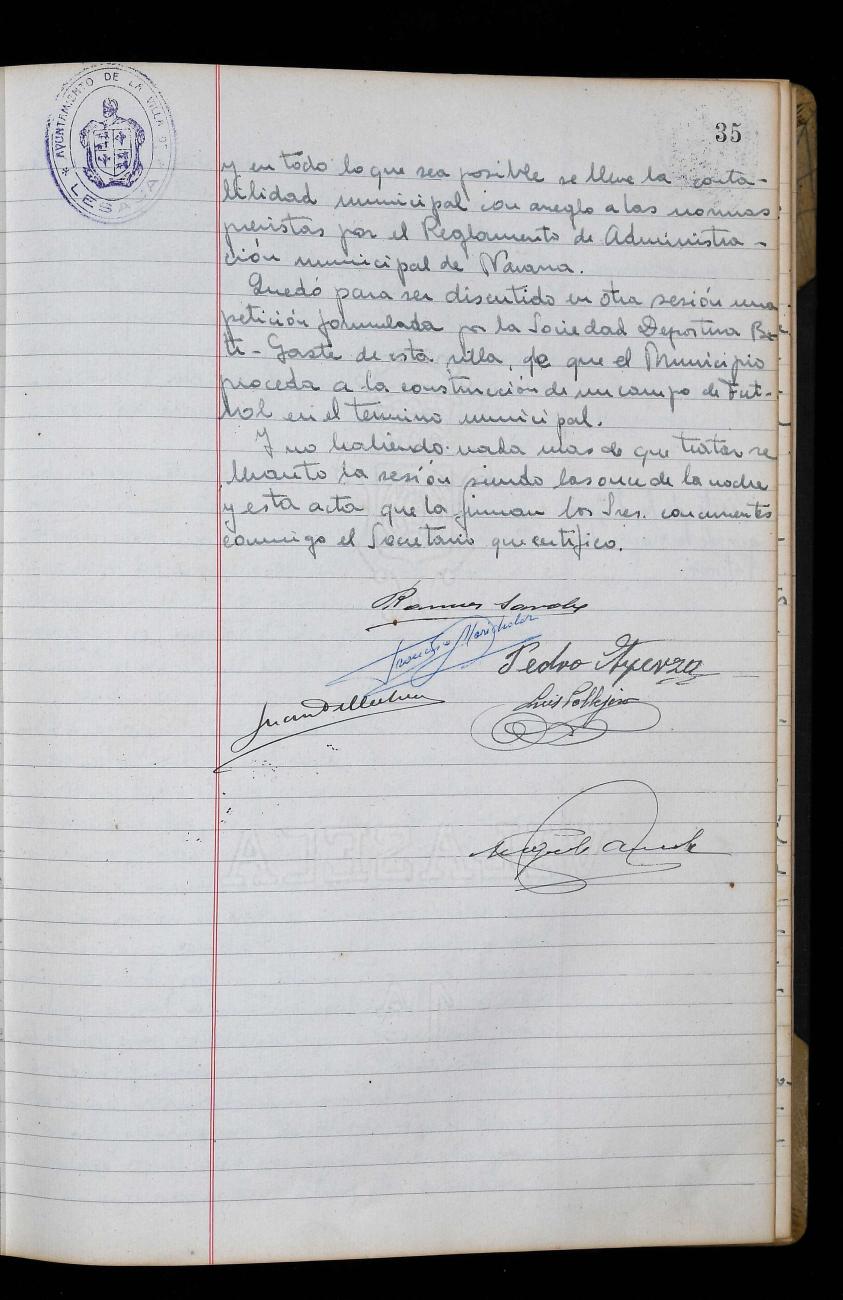 AYUNTAMIENTO DE LA VILLA DE
LESACA
35
y en todo lo que sea posible se lleve la conta-
bilidad municipal con areglo a las normas
previstas por el Reglamento de Administra-
ción municipal de Navarra.
Quedó para ser discutido en otra sesión una
petición formulada por la Sociedad Deportiva Be-
ti-Gazte de esta villa, de que el Municipio
proceda a la construcción de un campo de Fut-
bol en el termino municipal.
Y no habiendo nada mas de que tratar se
levanto la sesión siendo las once de la noche
y esta acta que la firman los Sres. concurrentes
conmigo el Secretario que certifico.
Pedro
Luis
Juan